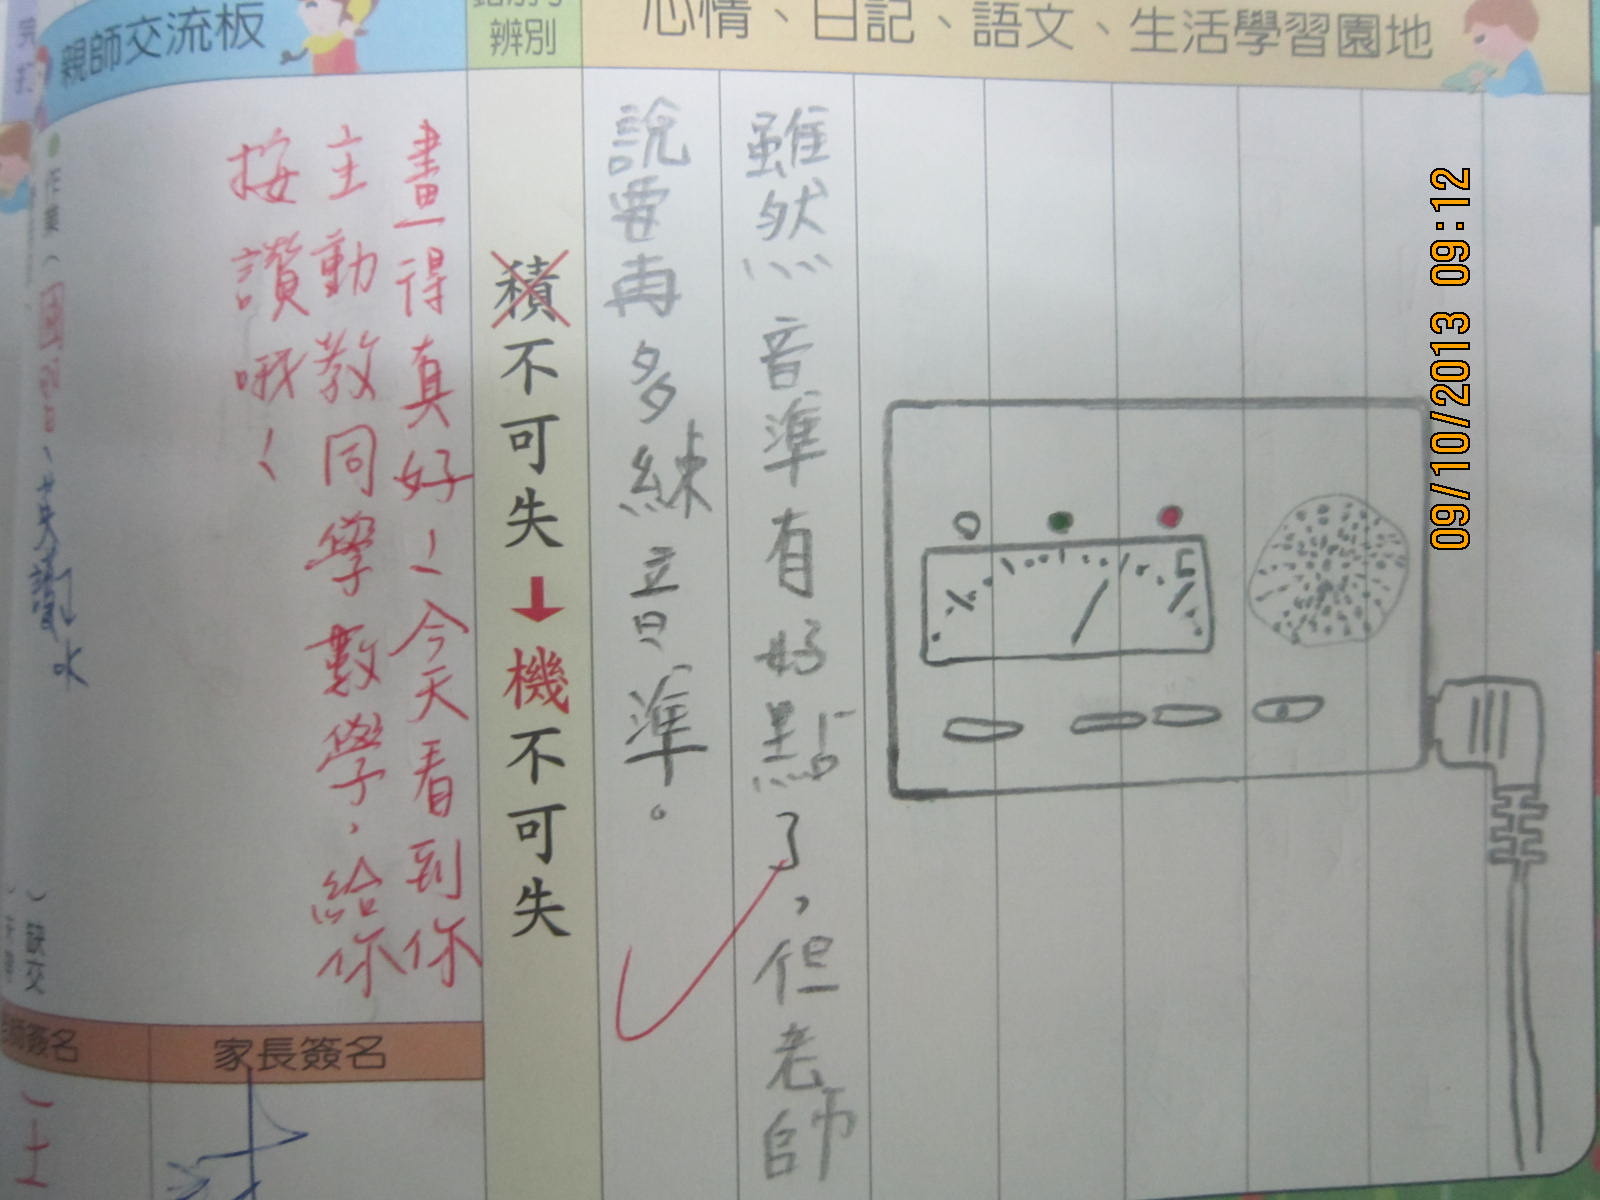 心情、日記、語文、生活學習園地
雖然音準有好點了，但老師
說要再多練音準。
辨別
積不可失↓機不可失
親師交流板
畫得真好！今天看到你
主動教同學數學，給你
按讚哦！
作業（
）缺交
家長簽名
師簽名
09/10/2013 09:12